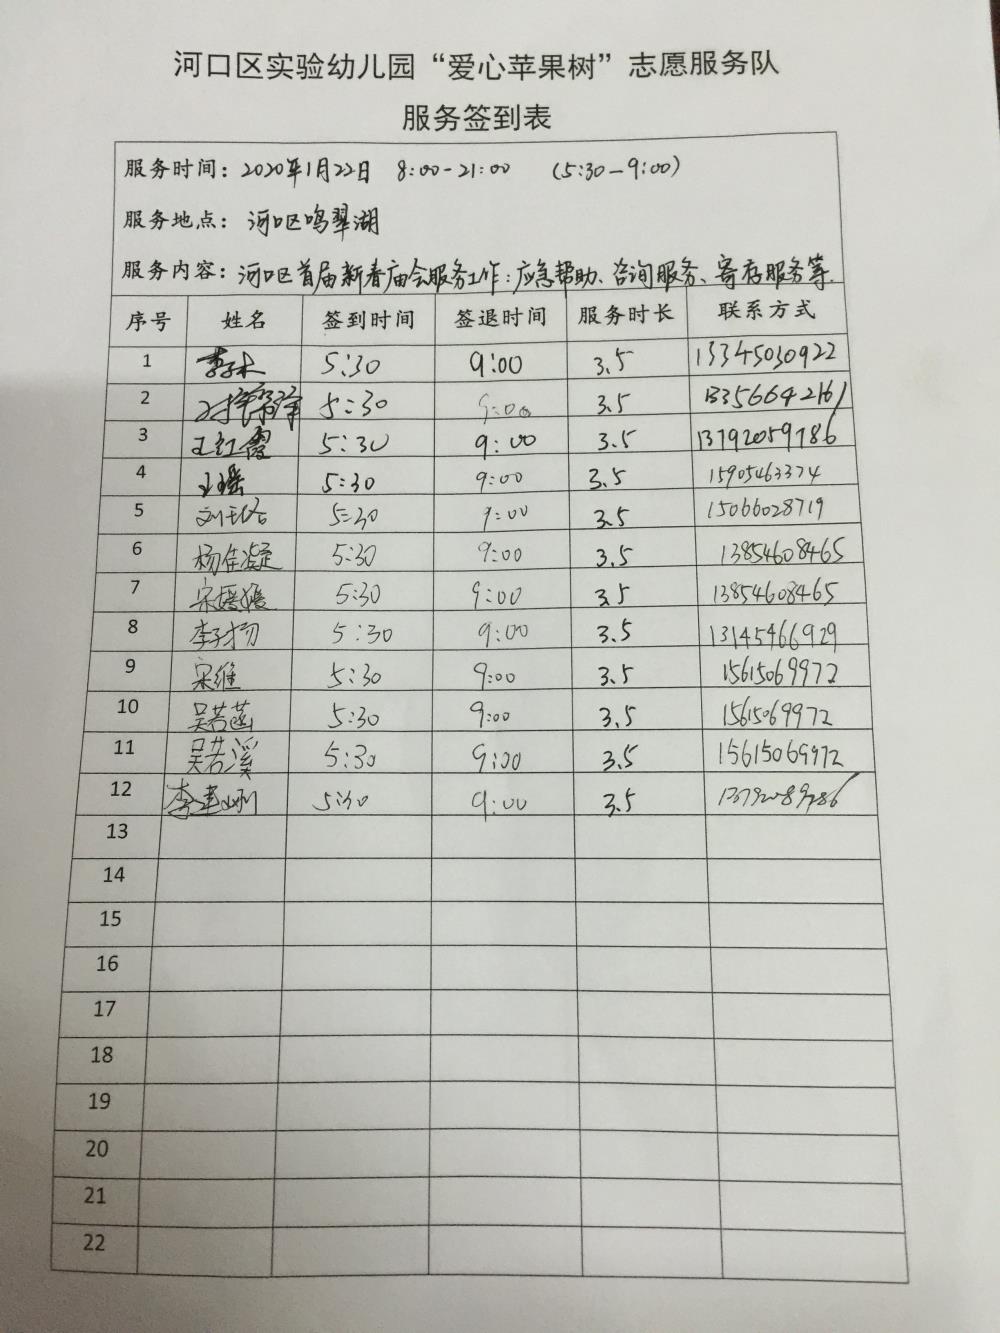 河口区实验幼儿园“爱心苹果树”志愿服务队
服务签到表
服务时间：2020年1月22日 8:00-21:00 (5:30-9:00)
服务地点：河口区鸣翠湖
服务内容：河口区首届新春庙会服务工作：应急帮助、咨询服务、寄存服务等.
序号 姓名 签到时间 签退时间 服务时长 联系方式
1 5:30 9:00 3.5 13345030922
2 5:30 9:00 3.5 13356642161
3 王红霞 5:30 9:00 3.5 13792059786
4 王瑶 5:30 9:00 3.5 15905463374
5 5:30 9:00 3.5 15066028719
6 杨佳凝 5:30 9:00 3.5 13854608465
7 宋媛媛 5:30 9:00 3.5 13854608465
8 李子扬 5:30 9:00 3.5 13145466929
9 宋维 5:30 9:00 3.5 15615069972
10 吴若菡 5:30 9:00 3.5 15615069972
11 吴若溪 5:30 9:00 3.5 15615069972
12 5:30 9:00 3.5
13
14
15
16
17
18
19
20
21
22